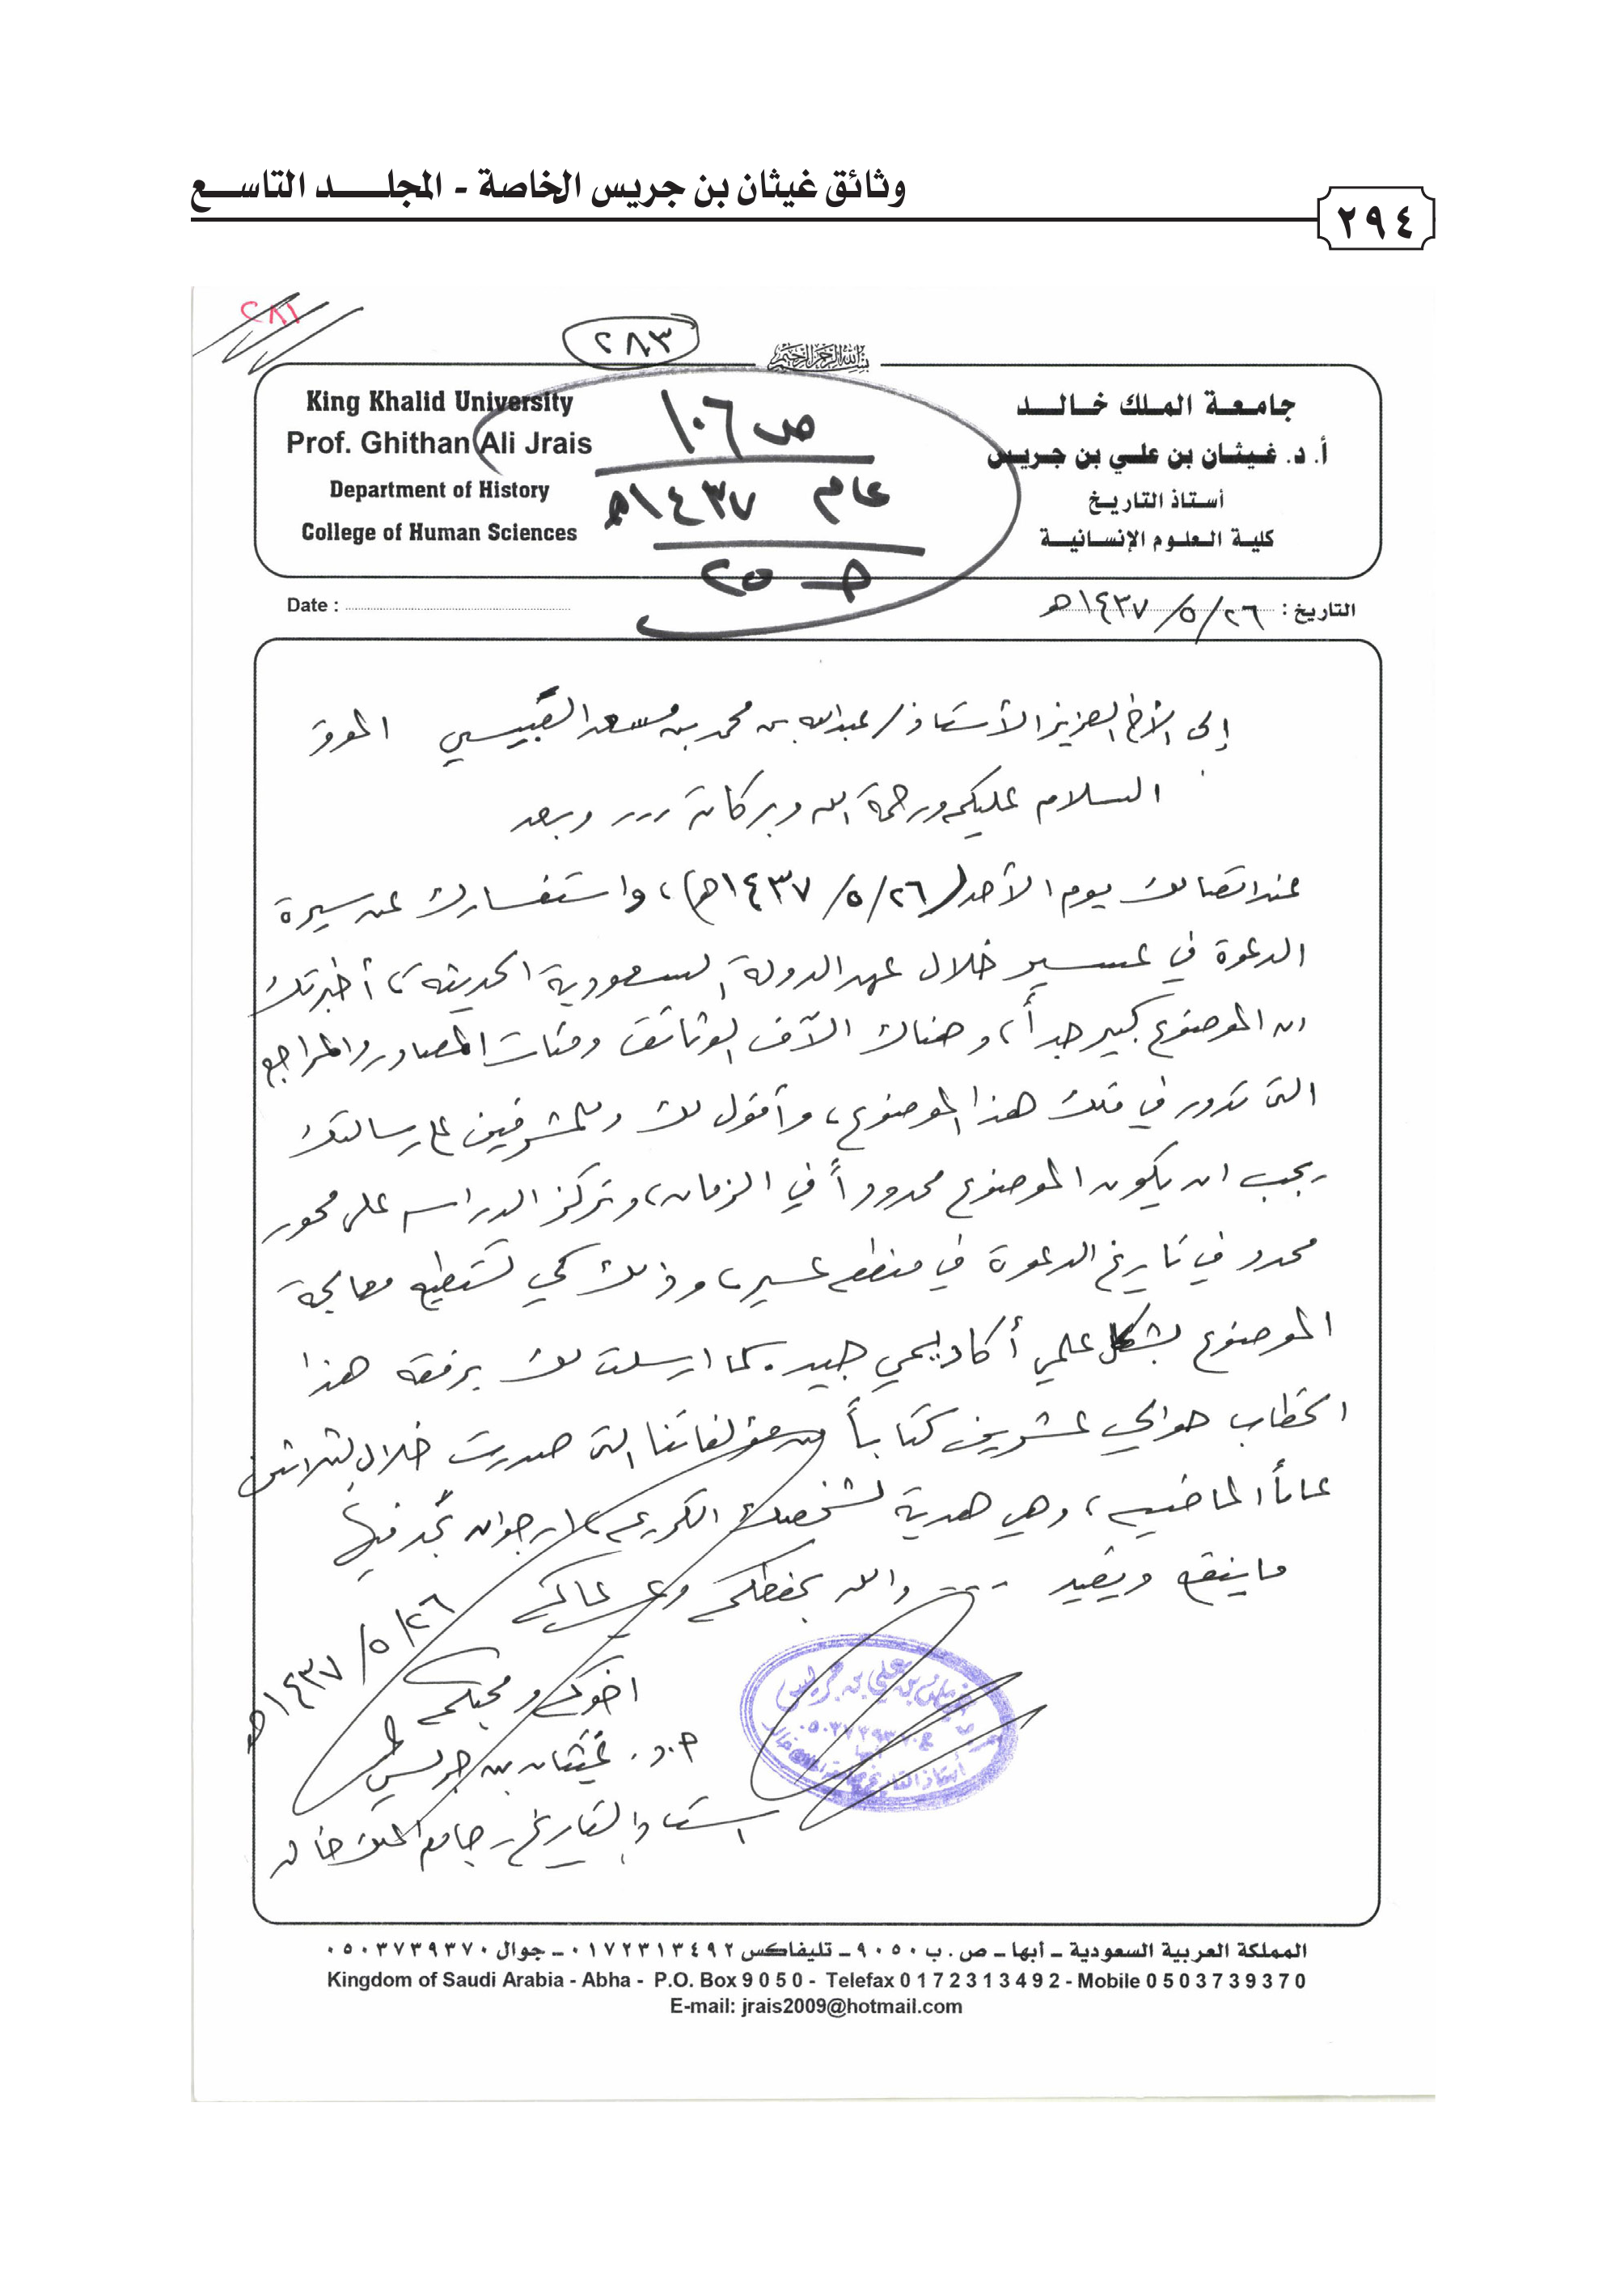 وثائق غيثان بن جريس الخاصة - المجلـــد التاســع
٢٩٤
٢٨١
٢٨٣
بسم الله الرحمن الرحيم
جامعة الملك خالد
أ. د. غيثان بن علي بن جريس
أستاذ التاريخ
كلية العلوم الإنسانية
King Khalid University
Prof. Ghithan Ali Jrais
Department of History
College of Human Sciences
ص ١٠٦
عام ١٤٣٧هـ
حـ ٢٥
التاريخ : ٢٦/ ٥/ ١٤٣٧هـ
Date :
إلى الأخ العزيز الأستاذ/ عبدالله بن محمد بن مسعد القبيسي الموقر
السلام عليكم ورحمة الله وبركاته ... وبعد
عند اتصالك يوم الأحد (٢٦/ ٥/ ١٤٣٧هـ)، واستفسارك عن سيرة
الدعوة في عسير خلال عهد الدولة السعودية الحديثة، أخبرتك
ان الموضوع كبير جداً، وهناك الآف الوثائق ومئات المصادر والمراجع
التي تدور في فلك هذا الموضوع، وأقول لك وللمشرفين على رسالتك
يجب ان يكون الموضوع محدوداً في الزمان، وتركز الدراسة على محور
محدد في تاريخ الدعوة في منطقة عسير، وذلك كي تستطيع معالجة
الموضوع بشكل علمي أكاديمي جيد. كما ارسلت لك برفقة هذا
الخطاب حوالي عشرين كتاباً من مؤلفاتنا التي صدرت خلال الثلاثين
عاماً الماضية، وهي هدية لشخصك الكريم، ارجو ان تجد فيها
ما ينفع ويفيد ... والله يحفظكم ويرعاكم
٢٦/ ٥/ ١٤٣٧هـ
اخوكم ومحبكم
أ.د. غيثان بن جريس
استاذ التاريخ ـ جامعة الملك خالد
غيثان بن علي بن جريس
المملكة العربية السعودية ـ أبها ـ ص. ب ٩٠٥٠ ـ تليفاكس ٠١٧٢٣١٣٤٩٢ ـ جوال ٠٥٠٣٧٣٩٣٧٠
Kingdom of Saudi Arabia - Abha - P.O. Box 9 0 5 0 - Telefax 0 1 7 2 3 1 3 4 9 2 - Mobile 0 5 0 3 7 3 9 3 7 0
E-mail: jrais2009@hotmail.com